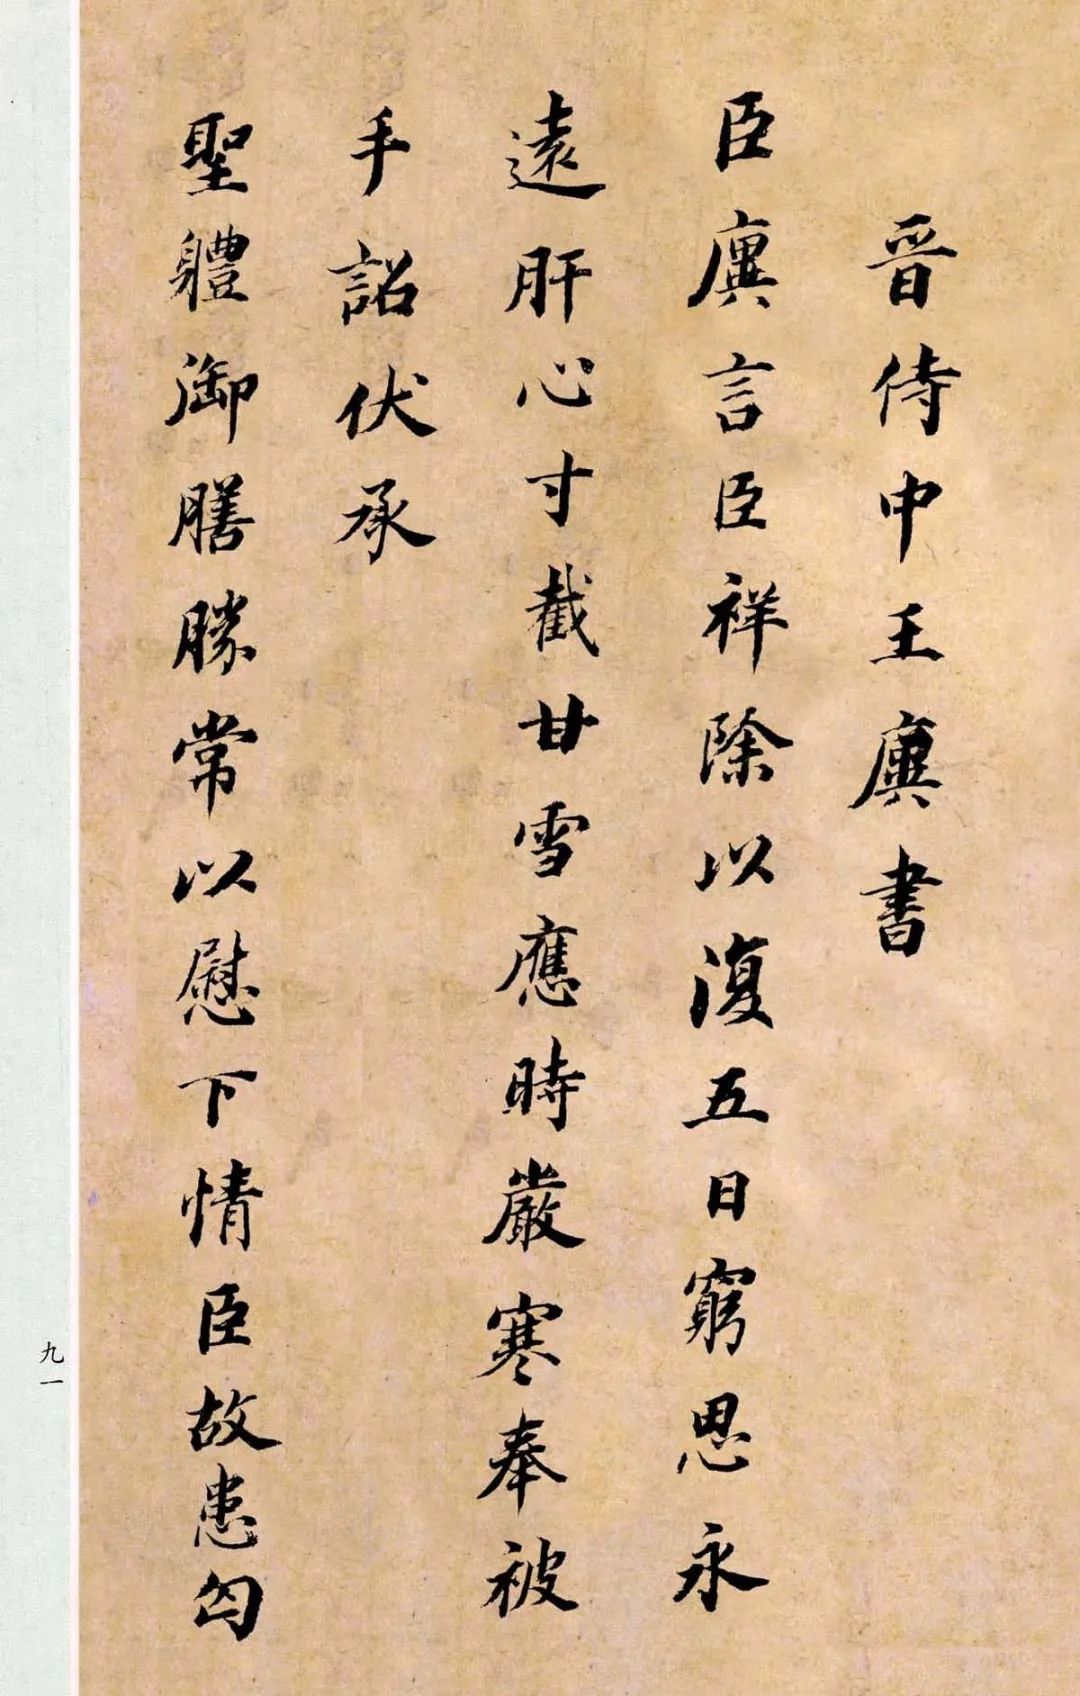 晉侍中王廙書
臣廙言臣祥除以復五日窮思永
遠肝心寸截甘雪應時嚴寒奉被
手詔伏承
聖體御膳勝常以慰下情臣故患匈
九一